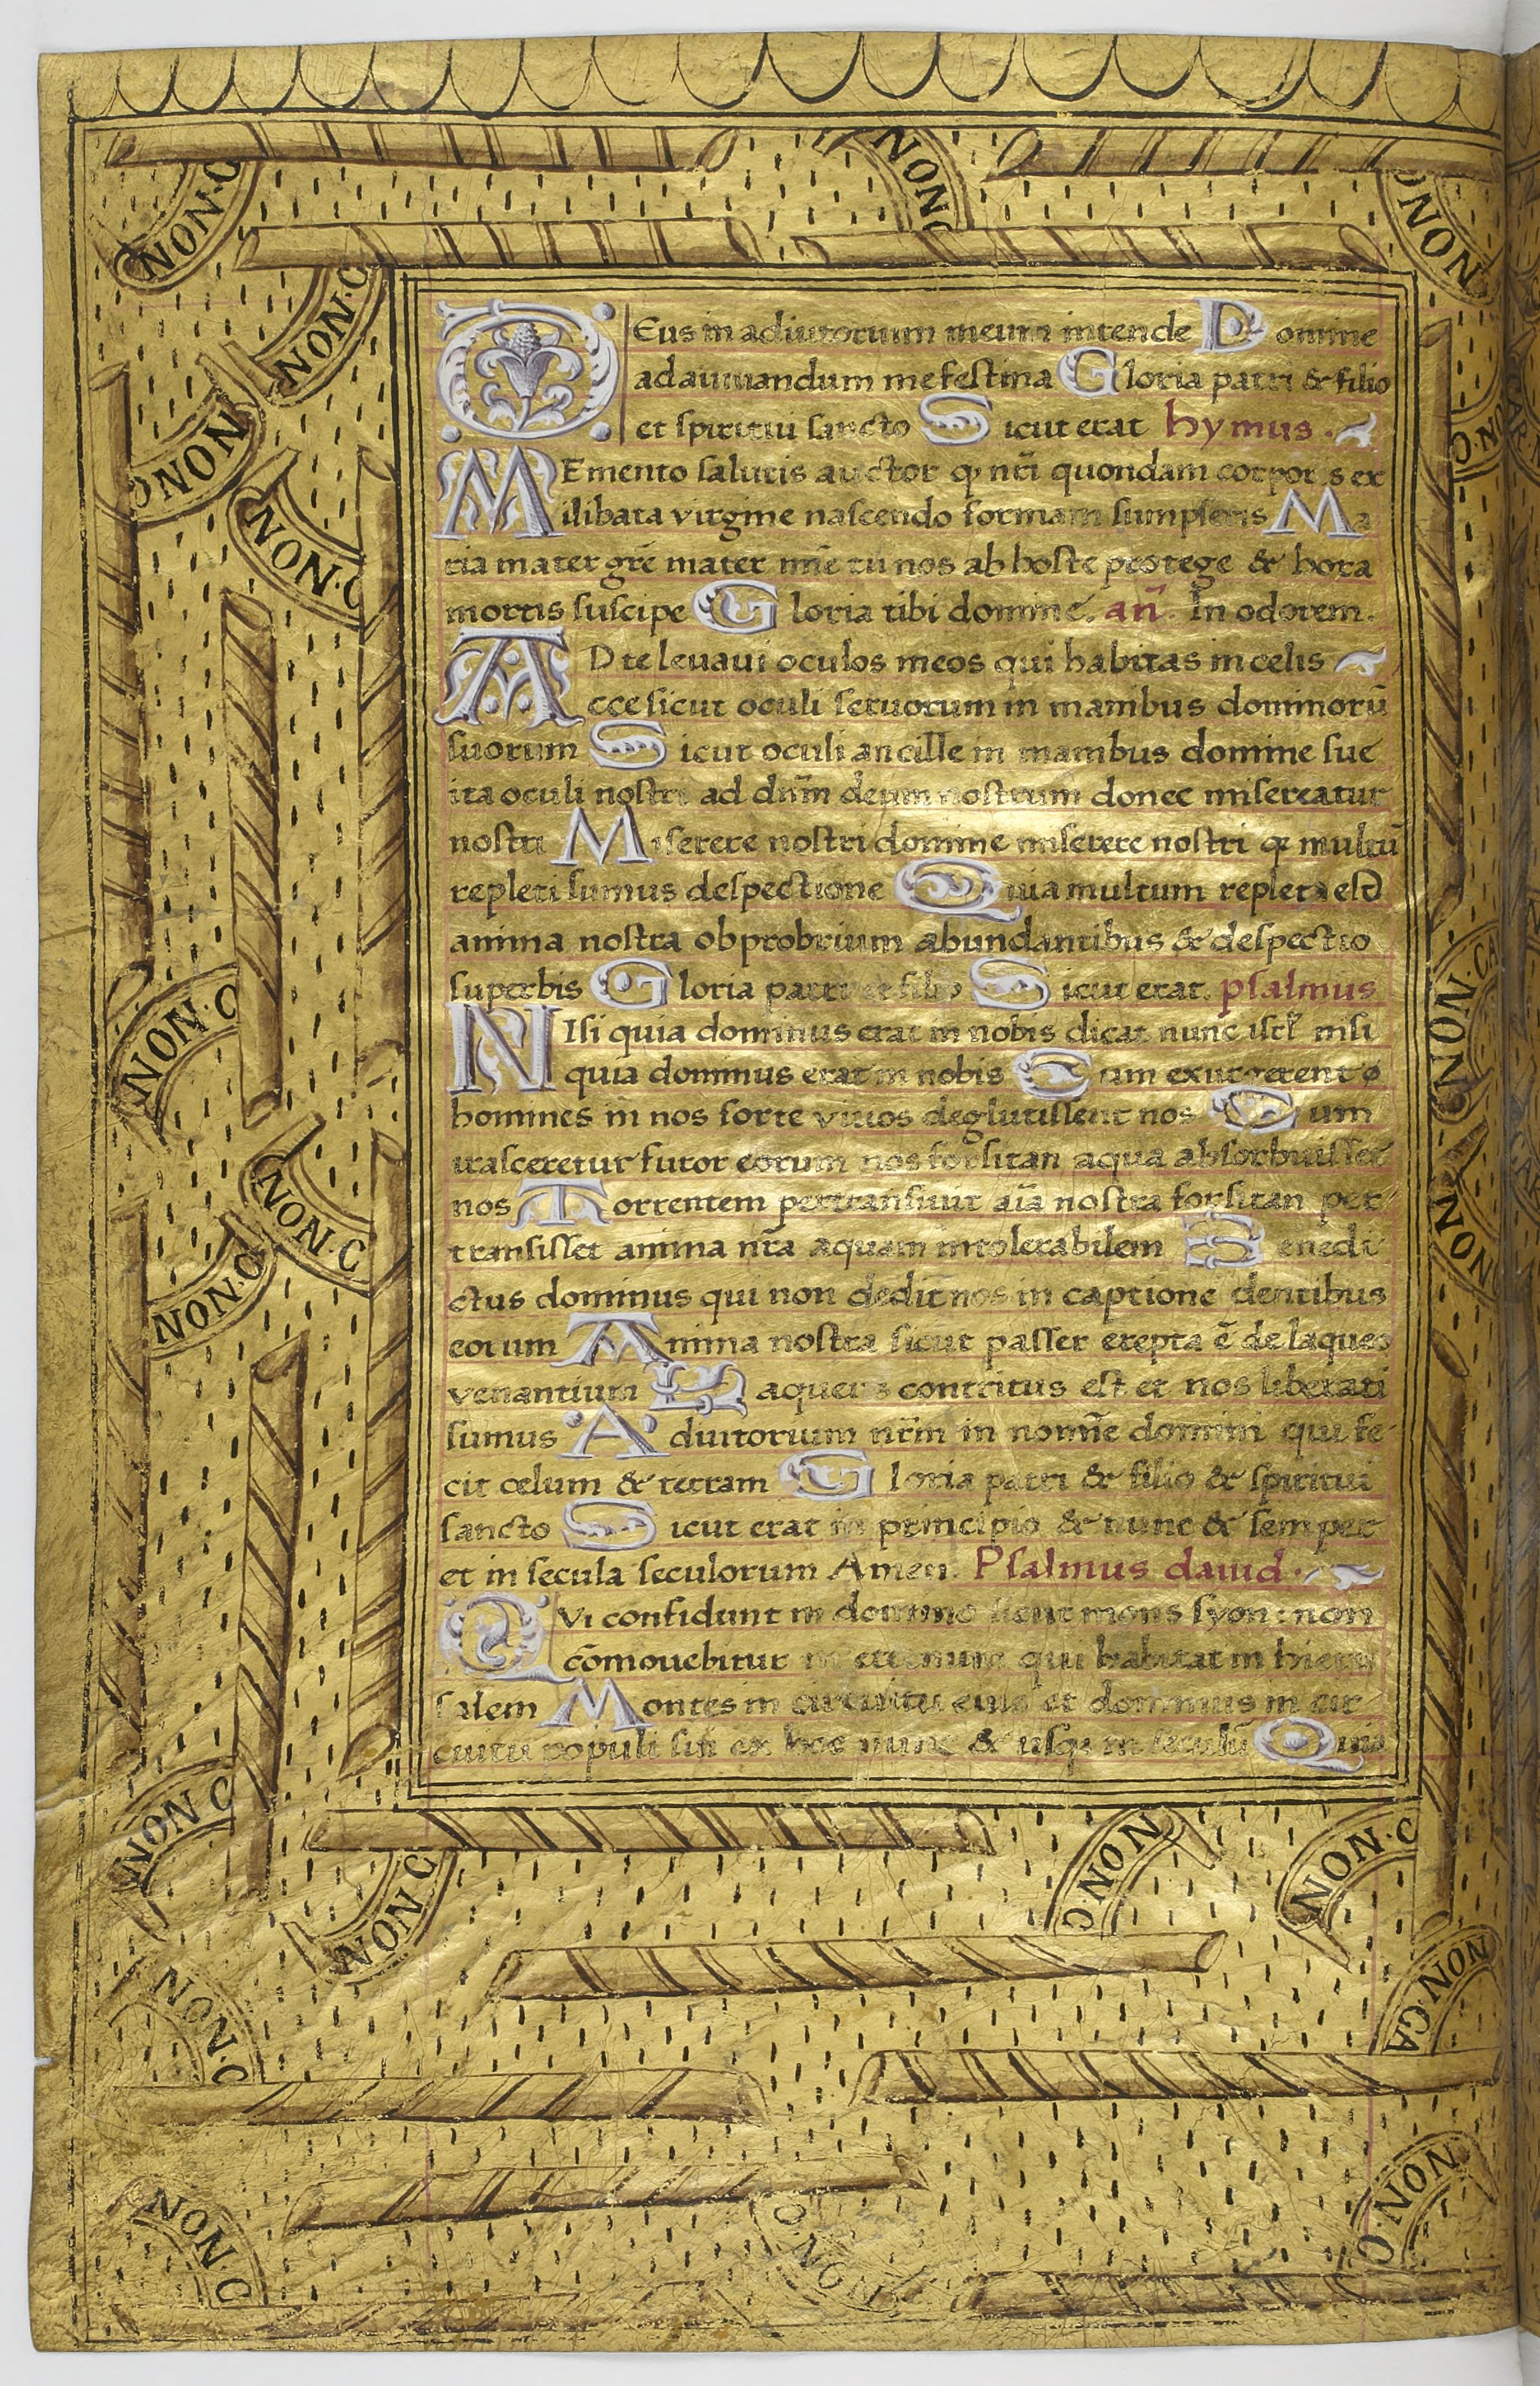 DEus in adiutorium meum intende Domine
ad aiuuandum me festina Gloria patri & filio
et spiritui sancto Sicut erat hymus.
MEmento salutis auctor q nr̄i quondam corporis ex
ilibata virgine nascendo formam sumpseris Ma
ria mater gr̄e mater mīe tu nos ab hoste protege & hora
mortis suscipe Gloria tibi domine. an̄. In odorem.
AD te leuaui oculos meos qui habitas in celis
ecce sicut oculi seruorum in manibus dominorū
suorum Sicut oculi ancille in manibus domine sue
ita oculi nostri ad dn̄m deum nostrum donec misereatur
nostri Miserere nostri domine miserere nostri q multū
repleti sumus despectione Quia multum repleta est
anima nostra obprobrium abundantibus & despectio
superbis Gloria patri et filio Sicut erat. psalmus
NIsi quia dominus erat in nobis dicat nunc isrl̄ nisi
quia dominus erat in nobis Cum exurgerent
homines in nos forte viuos deglutissent nos Cum
irasceretur furor eorum nos forsitan aqua absorbuisset
nos Torrentem pertransiuit aīa nostra forsitan per
transisset anima nr̄a aquam intolerabilem Benedi
ctus dominus qui non dedit nos in captione dentibus
eorum Anima nostra sicut passer erepta ē de laqueo
venantium Laqueus contritus est et nos liberati
sumus Adiutorium nr̄m in nomīe domini qui fe
cit celum & terram Gloria patri & filio & spiritui
sancto Sicut erat in principio & nunc & semper
et in secula seculorum Amen. Psalmus dauid.
QVi confidunt in domino sicut mons syon: non
cōmouebitur in eternum qui habitat in hieru
salem Montes in circuitu eius et dominus in cir
cuitu populi sui ex hoc nunc & usq in seculū Quia
NON·C
NON·C
NON
NON
NON·C
NON
NON·C
C·NON
NON·C
NON·CA
NON·C
NON
NON·C
NON C
NON C
C·NON
NON·C
NON·C
NON·CA
NON C
C·NON
C·NON